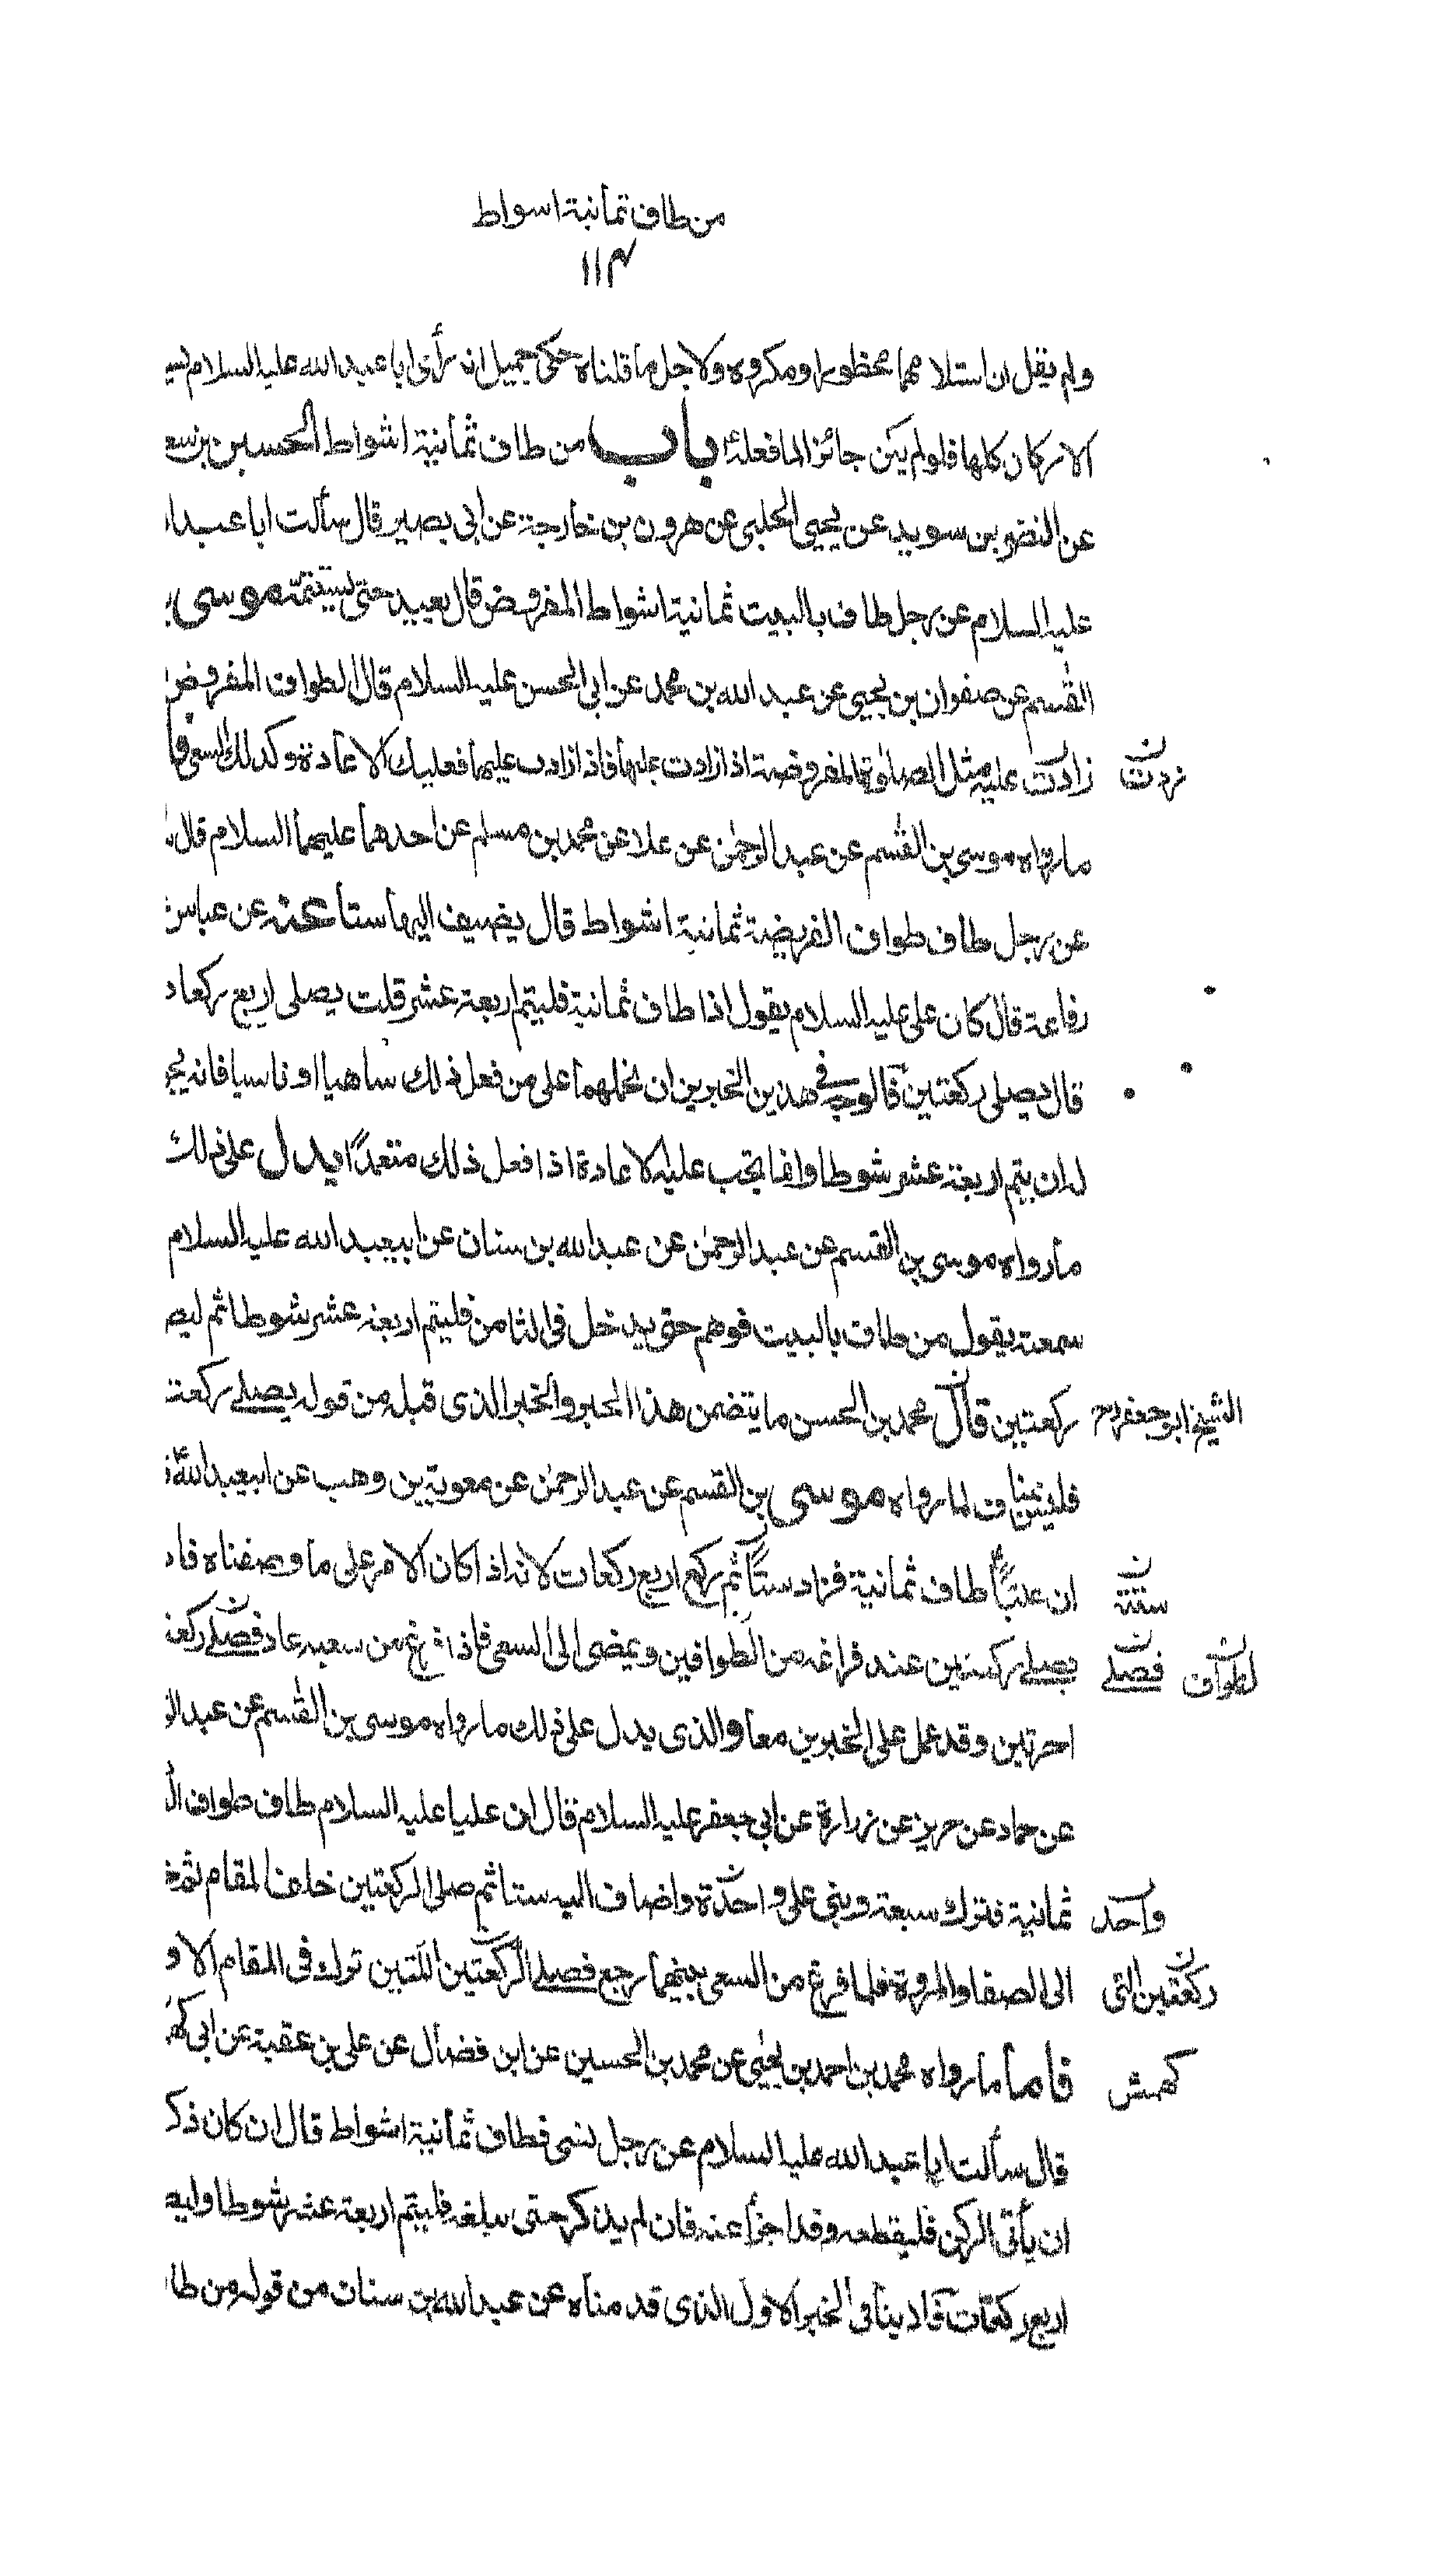 من طاف ثمانية اسواط
۱۱۴
ولم يقل ان استلامهما محظور او مكروه ولاجل ما قلناه حكى جميل انه رأى ابا عبد الله عليه السلام
الاركان كلها فلو لم يكن جائزا لما فعله باب من طاف ثمانية اشواط الحسين بن سع
عن النضر بن سويد عن يحيى الحلبي عن هرون بن خارجة عن ابي بصير قال سألت ابا عبد ا
عليه السلام عن رجل طاف بالبيت ثمانية اشواط المفروض قال يعيد حتى يستتمه موسى
القسم عن صفوان بن يحيى عن عبد الله بن محمد عن ابي الحسن عليه السلام قال الطواف المفروض
زدت زادت عليه مثل الصلوة المفروضة اذا زادت عليها فاذا زادت عليها فعليك الاعادة وكذلك السعي
ما رواه موسى بن القسم عن عبد الرحمن عن علا عن محمد بن مسلم عن احدهما عليهما السلام قال
عن رجل طاف طواف الفريضة ثمانية اشواط قال يضيف اليها ستا عنه عن عباس
رفاعة قال كان علي عليه السلام يقول اذا طاف ثمانية فليتم اربعة عشر قلت يصلي اربع ركعا
قال يصلي ركعتين فالوجه في هذين الخبرين ان نحملهما على من فعل ذلك ساهيا او ناسيا فانه
له ان يتم اربعة عشر شوطا وانما يجب عليه الاعادة اذا فعل ذلك متعمدا يدل على ذلك
ما رواه موسى بن القسم عن عبد الرحمن عن عبد الله بن سنان عن ابيعبد الله عليه السلام
سمعته يقول من طاف بالبيت فوهم حتى يدخل في الثامن فليتم اربعة عشر شوطا ثم ليص
الشيخ ابو جعفر رح ركعتين قال محمد بن الحسن ما يتضمن هذا الخبر والخبر الذى قبله من قوله يصلي ركعت
لما رواه موسى بن القسم عن عبد الرحمن عن معوية بن وهب عن ابيعبد الله
ستة ان عليا طاف ثمانية فزاد ستا ثم ركع اربع ركعات لانه اذا كان الامر على ما وصفناه فا
لطواف فصلى يصلي ركعتين عند فراغه من الطوافين ويمضى الى السعي فاذا فرغ من سعيه عاد فصلى ركعت
اخرتين وقد عمل على الخبرين معا والذى يدل على ذلك ما رواه موسى بن القسم عن عبد ال
عن حماد عن حريز عن زرارة عن ابي جعفر عليه السلام قال ان عليا عليه السلام طاف طواف ال
واحد ثمانية فترك سبعة وبنى على واحدة واضاف اليه ستا ثم صلى الركعتين خلف المقام ثم
ركعتين التي الى الصفا والمروة فلما فرغ من السعي بينهما رجع فصلى الركعتين اللتين ترك في المقام الاو
كهمش فاما ما رواه محمد بن احمد بن يحيى عن محمد بن الحسين عن ابن فضال عن علي بن عقبة عن ابي كه
قال سألت ابا عبد الله عليه السلام عن رجل نسى فطاف ثمانية اشواط قال ان كان ذكر
ان يأتى الركن فليقطعه وقد اجزأ عنه فان لم يذكر حتى بلغه فليتم اربعة عشر شوطا وليص
اربع ركعات في الخبر الاول الذى قدمناه عن عبد الله بن سنان من قوله من طا